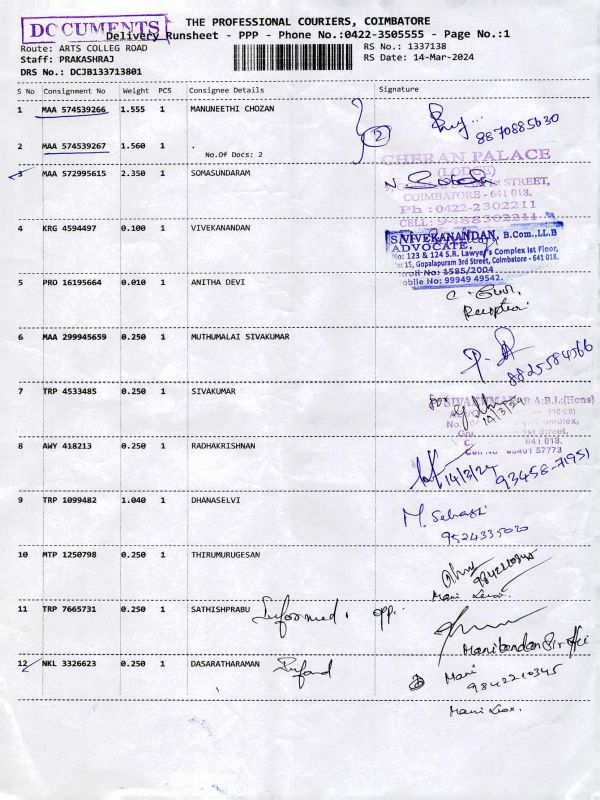 THE PROFESSIONAL COURIERS, COIMBATORE
DOCUMENTS
Delivery Runsheet - PPP - Phone No.:0422-3505555 - Page No.:1
Route: ARTS COLLEG ROAD
RS No.: 1337138
Staff: PRAKASHRAJ
RS Date: 14-Mar-2024
DRS No.: DCJB133713801
S No Consignment No Weight PCS Consignee Details Signature
1 MAA 574539266 1.555 1 MANUNEETHI CHOZAN
8870885630
2 MAA 574539267 1.560 1 .
No.Of Docs: 2
2
CHERAN PALACE
(LODGE)
STREET,
COIMBATORE - 641 018.
Ph : 0422-2302211
CELL: 9488302211
3 MAA 572995615 2.350 1 SOMASUNDARAM
4 KRG 4594497 0.100 1 VIVEKANANDAN
S.VIVEKANANDAN, B.Com.,LL.B
ADVOCATE,
No: 123 & 124 S.R. Lawyer's Complex Ist Floor,
No: 15, Gopalapuram 3rd Street, Coimbatore - 641 018.
Enroll No: 1585/2004
Mobile No: 99949 49542.
5 PRO 16195664 0.010 1 ANITHA DEVI
6 MAA 299945659 0.250 1 MUTHUMALAI SIVAKUMAR
8825584566
7 TRP 4533485 0.250 1 SIVAKUMAR
for
14/3/24
B.A;B.L;(Hons)
Street,
641 018.
98401 57773
8 AWY 418213 0.250 1 RADHAKRISHNAN
14/3/24 93458-71951
9 TRP 1099482 1.040 1 DHANASELVI
9524335020
10 MTP 1250798 0.250 1 THIRUMURUGESAN
9842210345
11 TRP 7665731 0.250 1 SATHISHPRABU Informed, opp.
12 NKL 3326623 0.250 1 DASARATHARAMAN
Mani
9842210345